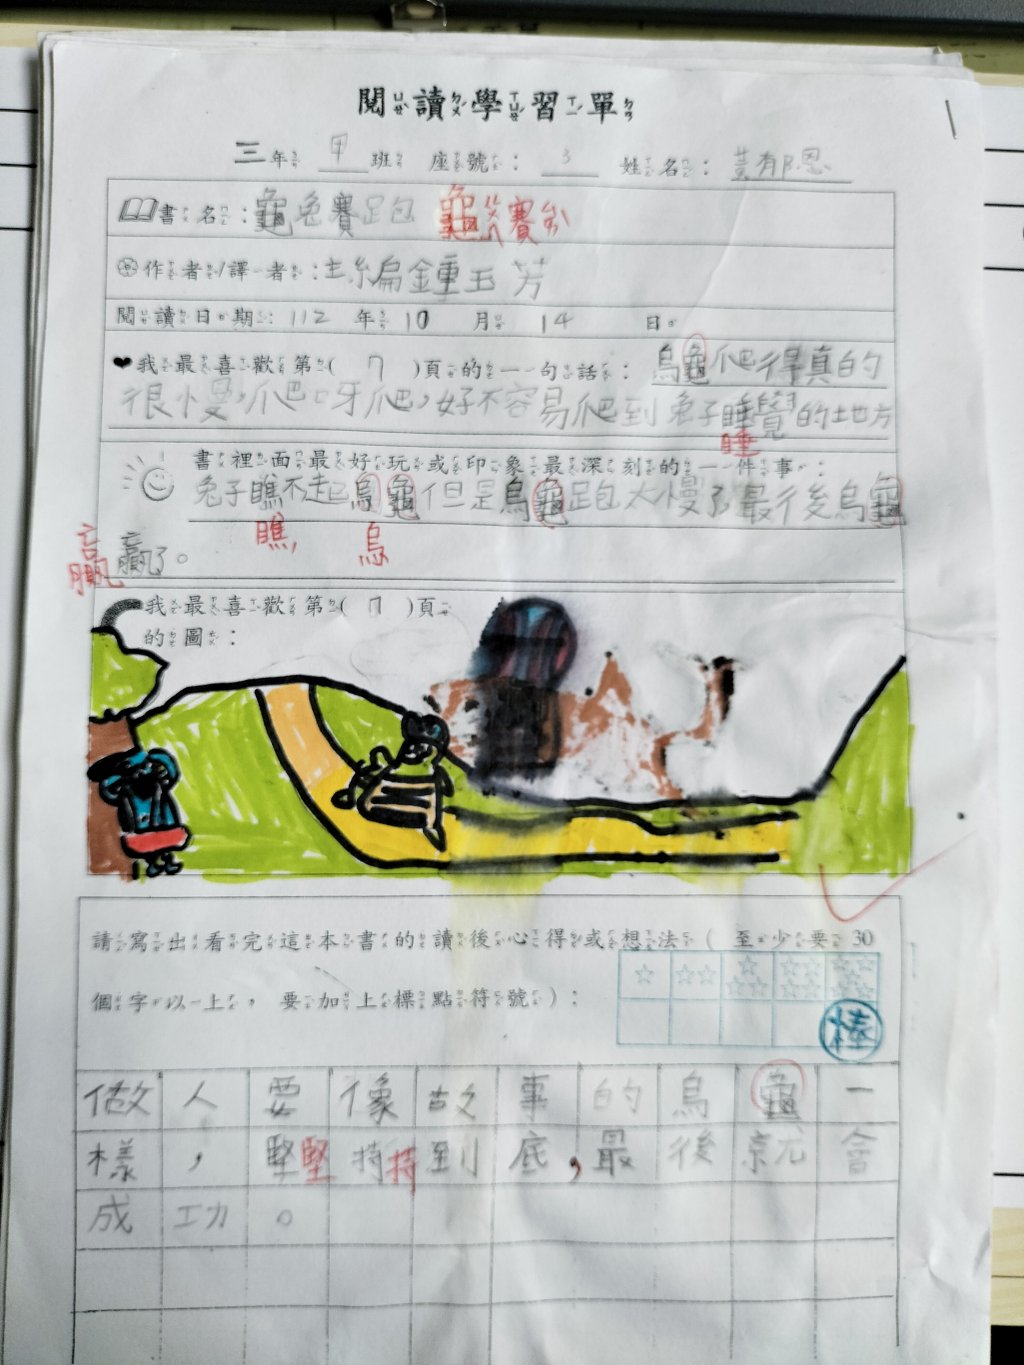 閱讀學習單
三年 甲 班 座號： 3 姓名： 黃郁恩
書名：龜兔賽跑 龜ㄍㄨㄟ賽ㄙㄞˋ
作者/譯者：主編鍾玉芳
閱讀日期：112 年 10 月 14 日。
❤我最喜歡第( 7 )頁的一句話： 烏龜爬得真的
很慢，爬呀爬，好不容易爬到兔子睡覺的地方
睡
書裡面最好玩或印象最深刻的一件事：
兔子瞧不起烏龜但是烏龜跑太慢了最後烏龜
瞧 烏
贏 贏了。
我最喜歡第( 7 )頁
的圖：
請寫出看完這本書的讀後心得或想法( 至少要30
☆ ☆☆ ☆☆☆ ☆☆☆☆ ☆☆☆☆☆
個字以上， 要加上標點符號)：
棒
做人要像故事的烏龜一
樣，堅堅持持到底，最後就會
成功。